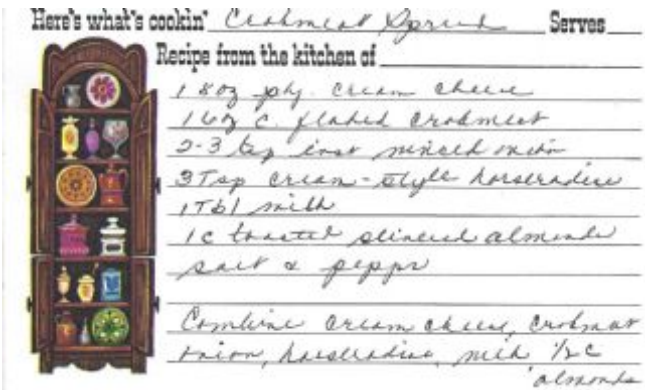 Here's what's cookin' Crabmeat Spread Serves
Recipe from the kitchen of
1 8oz pkg. cream cheese
1 6oz c. flaked crabmeat
2-3 tsp inst minced onion
3 Tsp cream-style horseradish
1 Tbl milk
1c toasted slivered almonds
salt & pepper
Combine cream cheese, crabmeat
onion, horseradish, milk 1/2 c
almonds